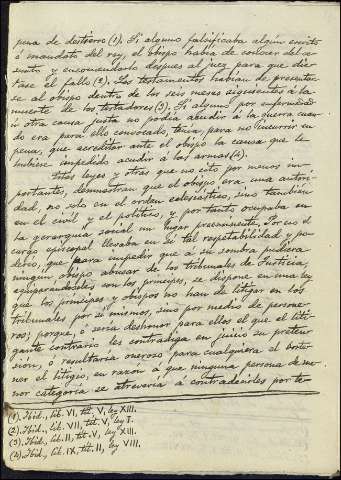 pena de destierro (1). Si alguno falsificaba algún escrito
ó mandato del rey, el obispo había de conocer del a-
sunto y encomendarlo despues al juez para que dic-
tase el fallo (2). Los testamentos habian de presentar-
se al obispo dentro de los seis meses siguientes á la
muerte de los testadores (3). Si alguno por enfermedad
ú otra causa justa no podía acudir á la guerra cuan-
do era para ello convocado, tenia, para no incurrir en
pena, que acreditar ante el obispo la causa que le
hubiese impedido acudir á las armas (4).
Estas leyes y otras que no cito por menos im-
portantes, demuestran que el obispo era una autori-
dad, no solo en el orden eclesiástico, sino tambien
en el civil y el político, y por tanto ocupaba en
la gerarquía social un lugar preeminente. Por eso el
cargo episcopal llevaba en sí tal respetabilidad y po-
derío, que para impedir que á su sombra pudiera
ningun obispo abusar de los tribunales de Justicia,
equiparandoseles con los príncipes, se dispone en una ley
que los príncipes y obispos no han de litigar en los
tribunales por sí mismos, sino por medio de persone-
ros; porque, ó seria deshonor para ellos el que el liti-
gante contrario les contradiga en juicio su preten-
sion, ó resultaria oneroso para cualquiera el soste-
ner el litigio, en razon á que ninguna persona de me-
nor categoría se atreveria á contradecirles por te-
(1). Ibid., lib. VI, tit. V, ley XIII.
(2). Ibid., lib. VII, tit. V, ley I.
(3). Ibid., lib. II, tit. V, ley XIII.
(4). Ibid., lib. IX, tit. II, ley VIII.